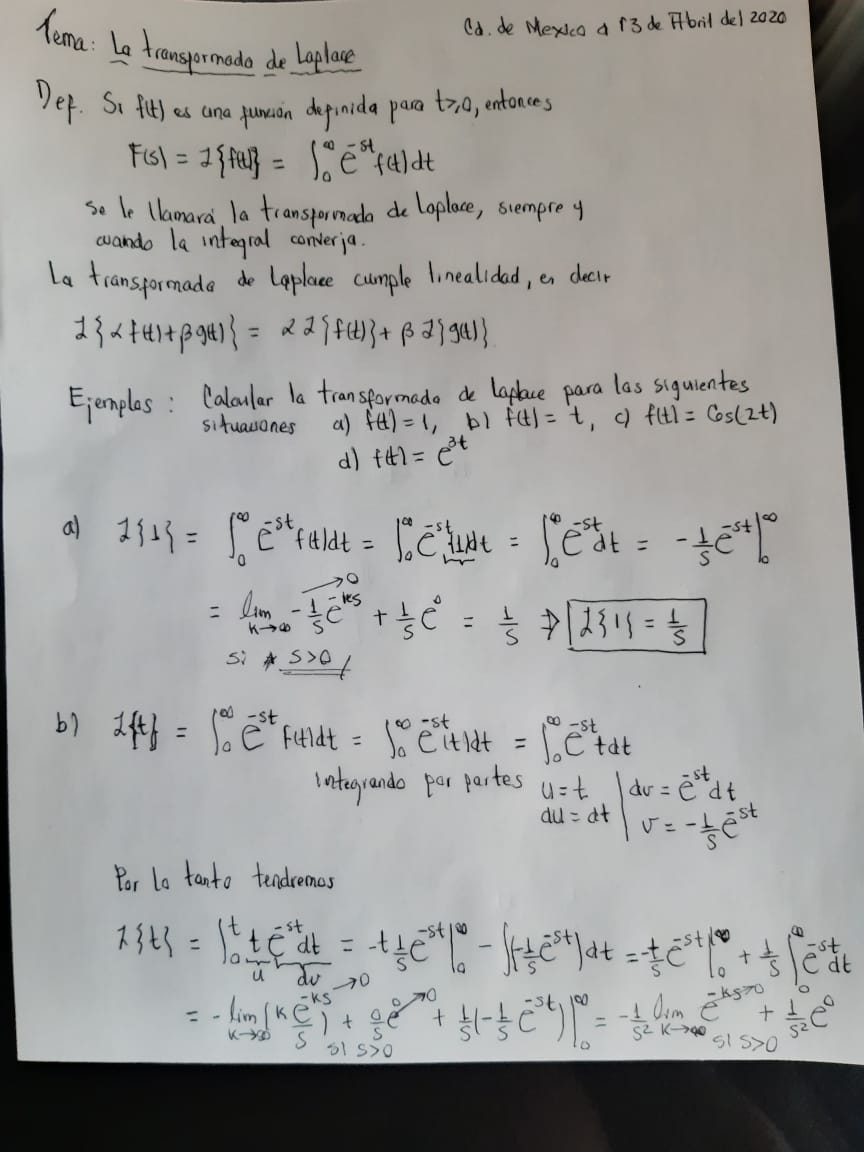 Cd. de Mexico a 13 de Abril del 2020
Tema: La transformada de Laplace
Def. Si f(t) es una función definida para t≥0, entonces
F(s) = ℒ{f(t)} = ∫₀^∞ e^{-st} f(t)dt
se le llamará la transformada de Laplace, siempre y
cuando la integral converja.
La transformada de Laplace cumple linealidad, es decir
ℒ{αf(t)+βg(t)} = αℒ{f(t)}+βℒ{g(t)}
Ejemplos: Calcular la transformada de laplace para las siguientes
situaciones a) f(t)=1, b) f(t)=t, c) f(t)=Cos(2t)
d) f(t)=e^{3t}
a) ℒ{1} = ∫₀^∞ e^{-st} f(t)dt = ∫₀^∞ e^{-st} (1)dt = ∫₀^∞ e^{-st}dt = -1/s e^{-st}|₀^∞
= lim_{k→∞} -1/s e^{-ks} →0 + 1/s e^0 = 1/s ⇒ ℒ{1} = 1/s
si s>0
b) ℒ{t} = ∫₀^∞ e^{-st} f(t)dt = ∫₀^∞ e^{-st} (t)dt = ∫₀^∞ e^{-st} t dt
Integrando por partes u=t | dv=e^{-st}dt
du=dt | v=-1/s e^{-st}
Por lo tanto tendremos
ℒ{t} = ∫₀^t t e^{-st}dt = -t 1/s e^{-st}|₀^∞ - ∫(-1/s e^{-st})dt = -t/s e^{-st}|₀^∞ + 1/s ∫₀^∞ e^{-st}dt
u dv
= -lim_{k→∞} (k e^{-ks}/s) →0 + 0/s e^0 →0 + 1/s(-1/s e^{-st})|₀^∞ = -1/s² lim_{k→∞} e^{-ks} →0 + 1/s² e^0
si s>0 si s>0